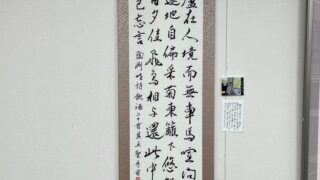 廬在人境而無車馬喧問
遠地自偏采菊東籬下悠然
日夕佳飛鳥相與還此中
已忘言 陶淵明詩飲酒二十首其五